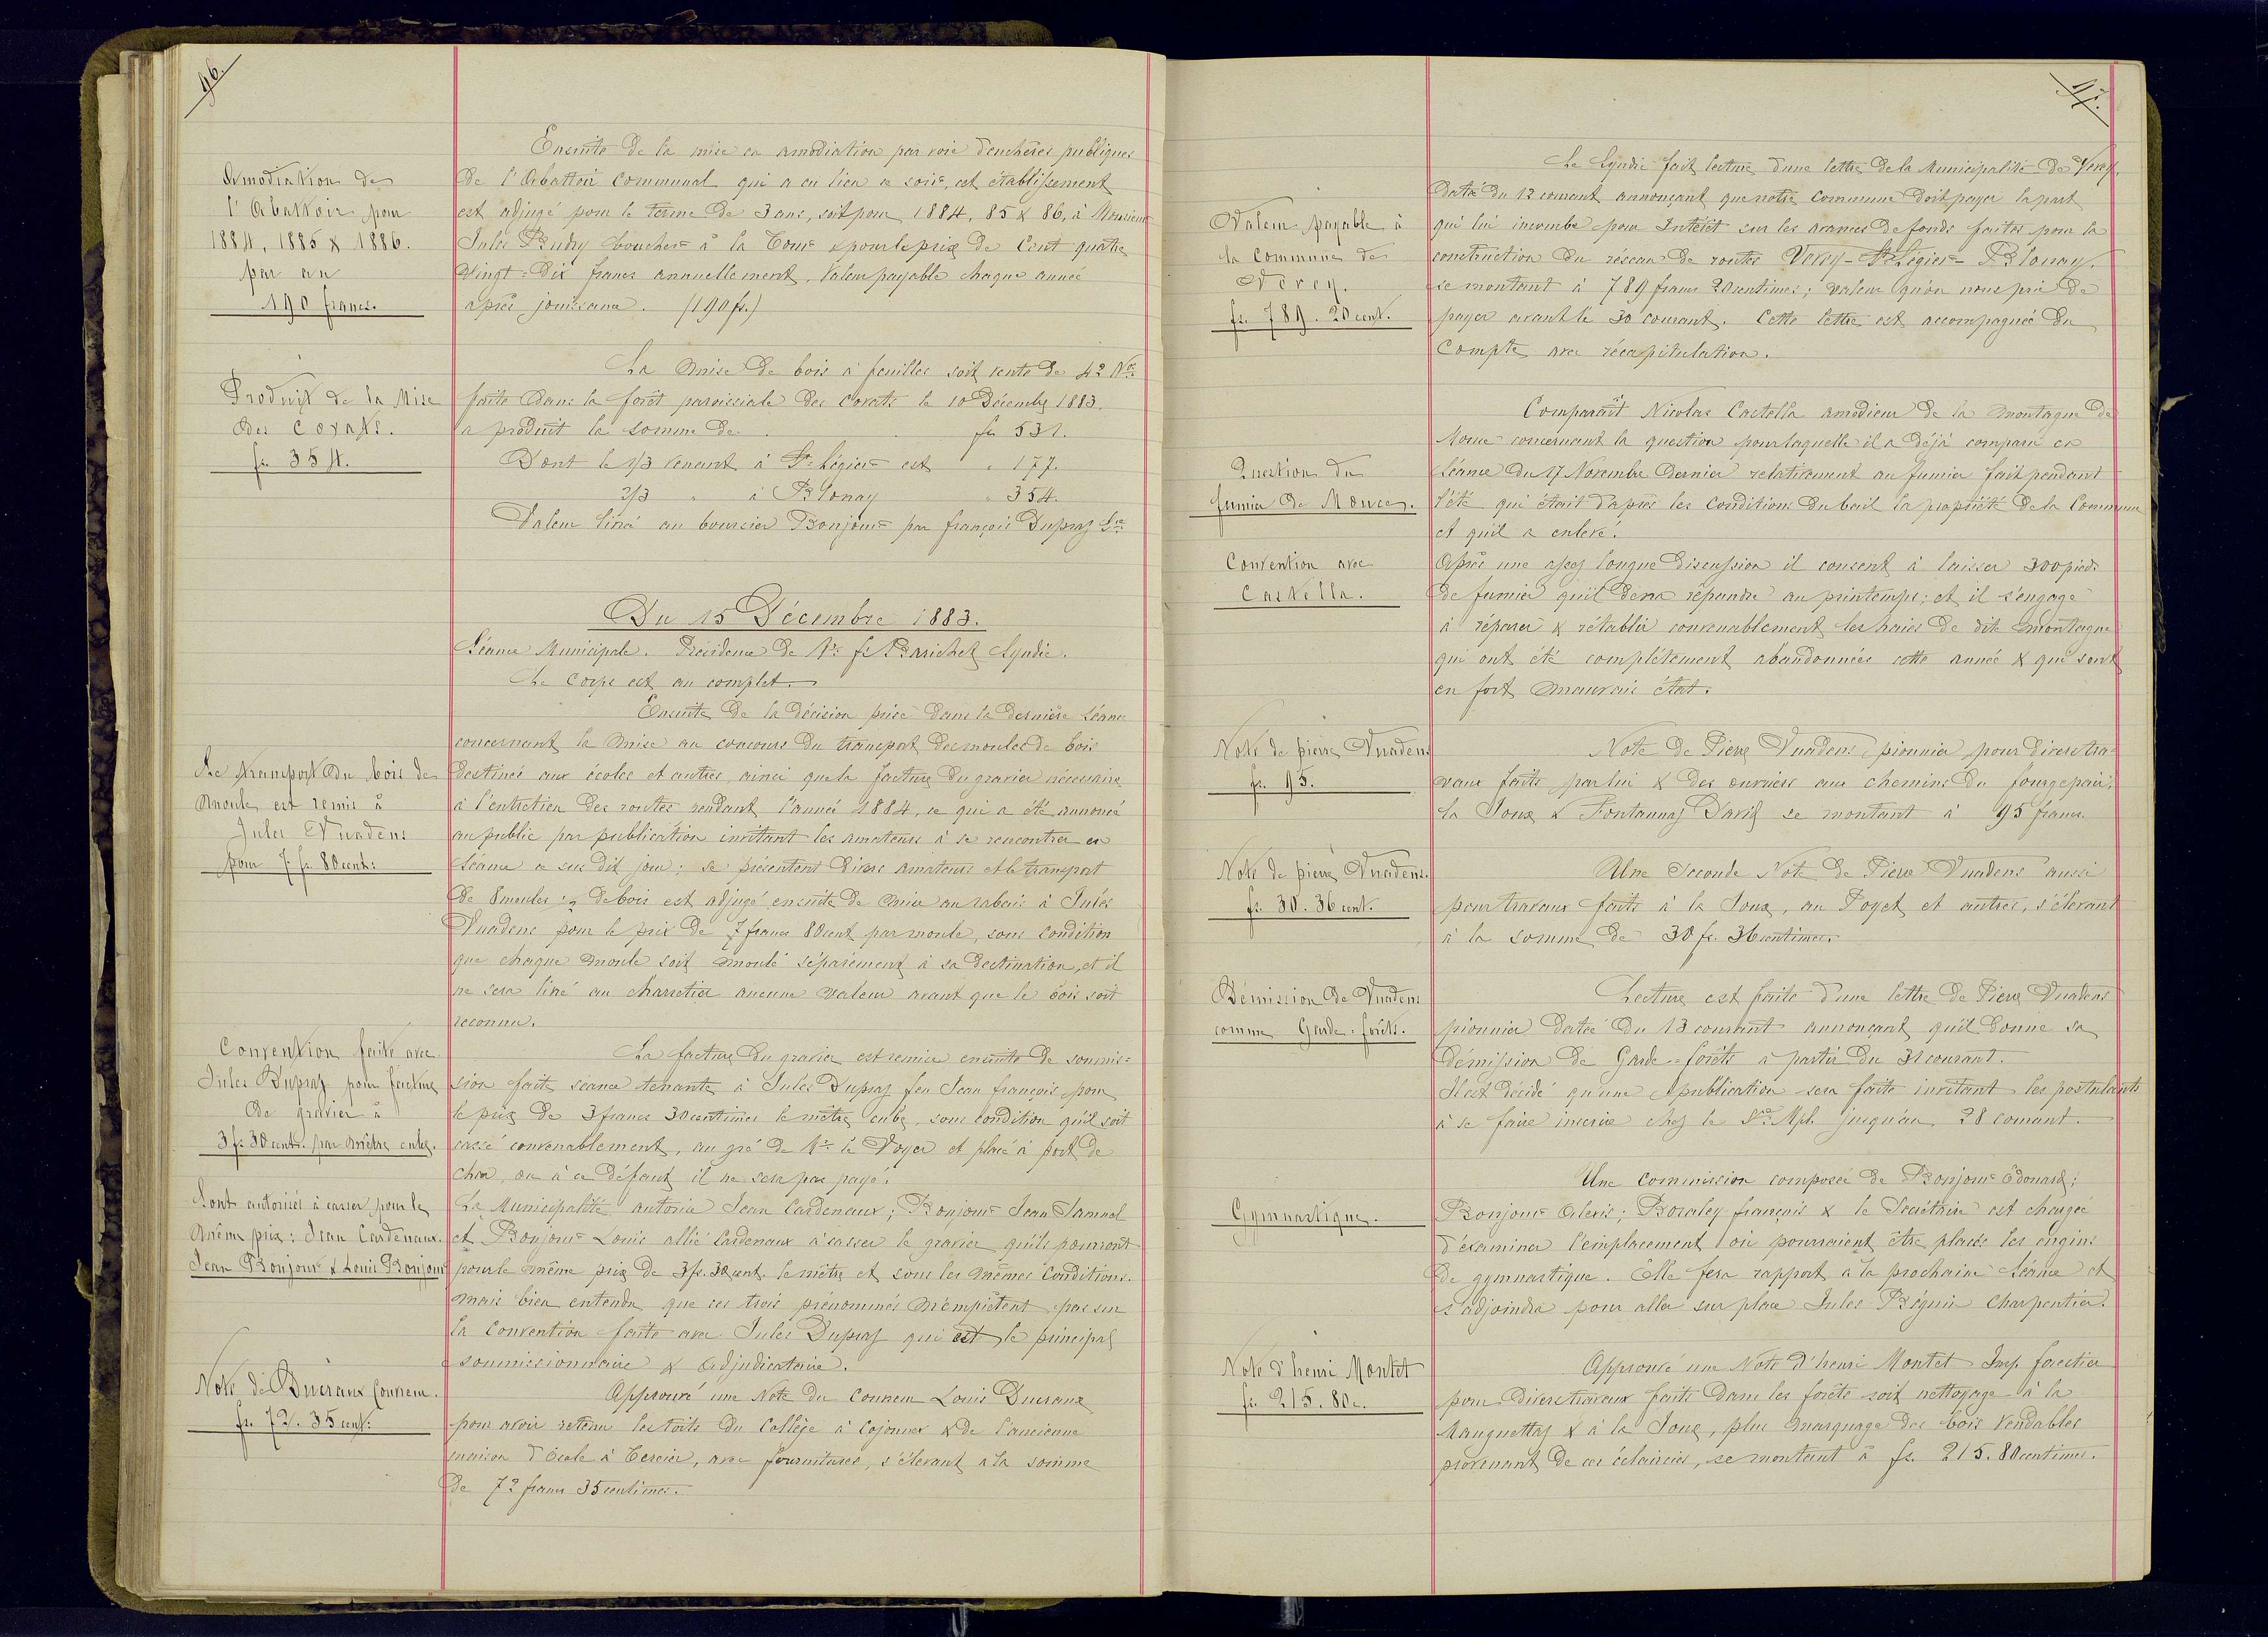 96.
Amodiation de
l'Abattoir pour
1884, 1885 & 1886.
par an
190 francs.
Ensuite de la mise en amodiation par voie d'enchères publiques
de l'Abattoir Communal qui a eu lieu ce soir, cet établissement
est adjugé pour le terme de 3 ans, soit pour 1884, 85 & 86, à Monsieur
Jules Budry boucher à la Tour & pour le prix de Cent quatre
Vingt-Dix francs annuellement, valeur payable chaque année
après jouissance. (190 fr.)
Produit de la Mise
des Covats.
fr. 354.
La mise de bois à feuilles soit vente de 42 Nos
faite dans la forêt paroissiale des Covats le 10 Décembre 1883.
a produit la somme de . . fr 531.
Dont le 1/3 revenant à St Légier est " 177.
2/3 " à Blonay " 354.
Valeur livré au boursier Bonjour par françois Dupraz Sre
Du 15 Décembre 1883.
Séance Municipale. Présidence de Mr fs Barichet Syndic.
Le Corps est au complet.
Le transport du bois de
moule est remis à
Jules Vuadens
pour 7 fr. 80 cent:
Ensuite de la décision prise dans la dernière Séance
concernant la mise au concours du transport des moules de bois
destinés aux écoles et autres, ainsi que la facture du gravier nécessaire
à l'entretien des routes pendant l'année 1884, ce qui a été annoncé
au public par publication invitant les amateurs à se rencontrer en
Séance ce sus dit jour; se présentent divers amateurs et le transport
de 8 moules de bois est adjugé ensuite de mise au rabais à Jules
Vuadens pour le prix de 7 francs 80 cent par moule, sous condition
que chaque moule soit moulé séparément à sa destination, et il
ne sera livré au charretier aucune valeur avant que le bois soit
reconnu.
Convention faite avec
Jules Dupraz pour facture
de gravier à
3 fr 30 cent. par mètre cube.
La facture du gravier est remise ensuite de soumis-
sion faite séance tenante à Jules Dupraz feu Jean françois pour
le prix de 3 francs 30 centimes le mètre cube, sous condition qu'il soit
cassé convenablement, au gré de Mr le Voyer et placé à port de
char, ou à ce défaut il ne sera pas payé.
Sont autorisés à casser pour le
même prix: Jean Cardenaux.
Jean Bonjour & Louis Bonjour
La Municipalité autorise Jean Cardenaux; Bonjour Jean Samuel
et Bonjour Louis allié Cardenaux à casser le gravier qu'ils pourront
pour le même prix de 3 fr. 30 cent. le mètre et sous les mêmes Conditions.
mais bien entendu que ces trois prénommés n'empiètent pas sur
la Convention faite avec Jules Dupraz qui est le principal
soumissionnaire & Adjudicataire.
Note de Ducraux Couvreur.
fr. 72. 35 cent:
Approuvé une Note du Couvreur Louis Ducraux
pour avoir retenu les toits du Collège à Cojonnex & de l'ancienne
maison d'École à Tercier, avec fournitures, s'élevant à la somme
de 72 francs 35 centimes.
97.
Valeur payable à
la Commune de
Vevey.
fr. 789. 20 cent.
Le Syndic fait lecture d'une lettre de la Municipalité de Vevey.
Daté du 12 courant annonçant que notre Commune doit payer la part
qui lui incombe pour Intérêt sur les avances de fonds faites pour la
construction du réseau de routes Vevey - St Légier - Blonay.
se montant à 789 francs 20 centimes; valeur qu'on nous prie de
payer avant le 30 courant. Cette lettre est accompagnée du
Compte avec récapitulation.
Question du
fumier de Mouce.
Comparaît Nicolas Castella amodieur de la montagne de
Mouce concernant la question pour laquelle il a déjà comparu en
Séance du 17 Novembre dernier relativement au fumier fait pendant
l'été qui était d'après les Conditions du bail la propriété de la Commune
et qu'il a enlevé.
Convention avec
Castella.
Après une assez longue discussion il consent à laisser 300 pieds
de fumier qu'il devra répandre au printemps; et il s'engage
à réparer & rétablir convenablement les haies de dite montagne
qui ont été complètement abandonnées cette année & qui sont
en fort mauvais état.
Note de pierre Vuadens
fr. 95.
Note de Pierre Vuadens pionnier pour divers tra-
vaux faits par lui & des ouvriers aux chemins du
la Joux & Fontannaz David se montant à 95 francs.
Note de pierre Vuadens.
fr. 30. 36 cent.
Une Seconde Note de Pierre Vuadens aussi
pour travaux faits à la Joux, au Poyet et autres, s'élevant
à la somme de 30 fr. 36 centimes.
Démission de Vuadens
comme Garde-forêts.
Lecture est faite d'une lettre de Pierre Vuadens
pionnier datée du 13 courant annonçant qu'il donne sa
démission de Garde-forêts à partir du 31 courant.
Il est décidé qu'une publication sera faite invitant les postulants
à se faire inscrire chez le Sre Mpl. jusqu'au 28 courant.
Gymnastique.
Une commission composée de Bonjour Édouard;
Bonjour Alexis; Boraley françois & le Secrétaire est chargée
d'examiner l'emplacement où pourraient être placés les engins
de gymnastique. Elle fera rapport à la prochaine Séance et
s'adjoindra pour aller sur place Jules Béguin Charpentier.
Note d'henri Montet
fr. 215. 80 c.
Approuvé une Note d'henri Montet Insp. forestier
pour divers travaux faits dans les forêts soit nettoyage à la
Mauguettaz & à la Joux, plus marquage des bois vendables
provenant de ces éclaircies, se montant à fr. 215. 80 centimes.